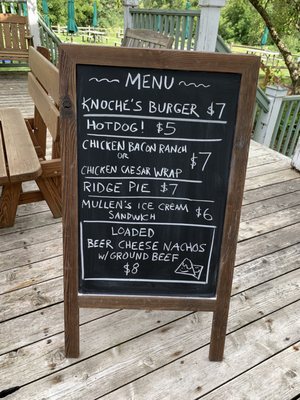 MENU
KNOCHE'S BURGER $7
HOTDOG! $5
CHICKEN BACON RANCH
OR $7
CHICKEN CAESAR WRAP
RIDGE PIE $7
MULLEN'S ICE CREAM $6
SANDWICH
LOADED
BEER CHEESE NACHOS
W/ GROUND BEEF
$8